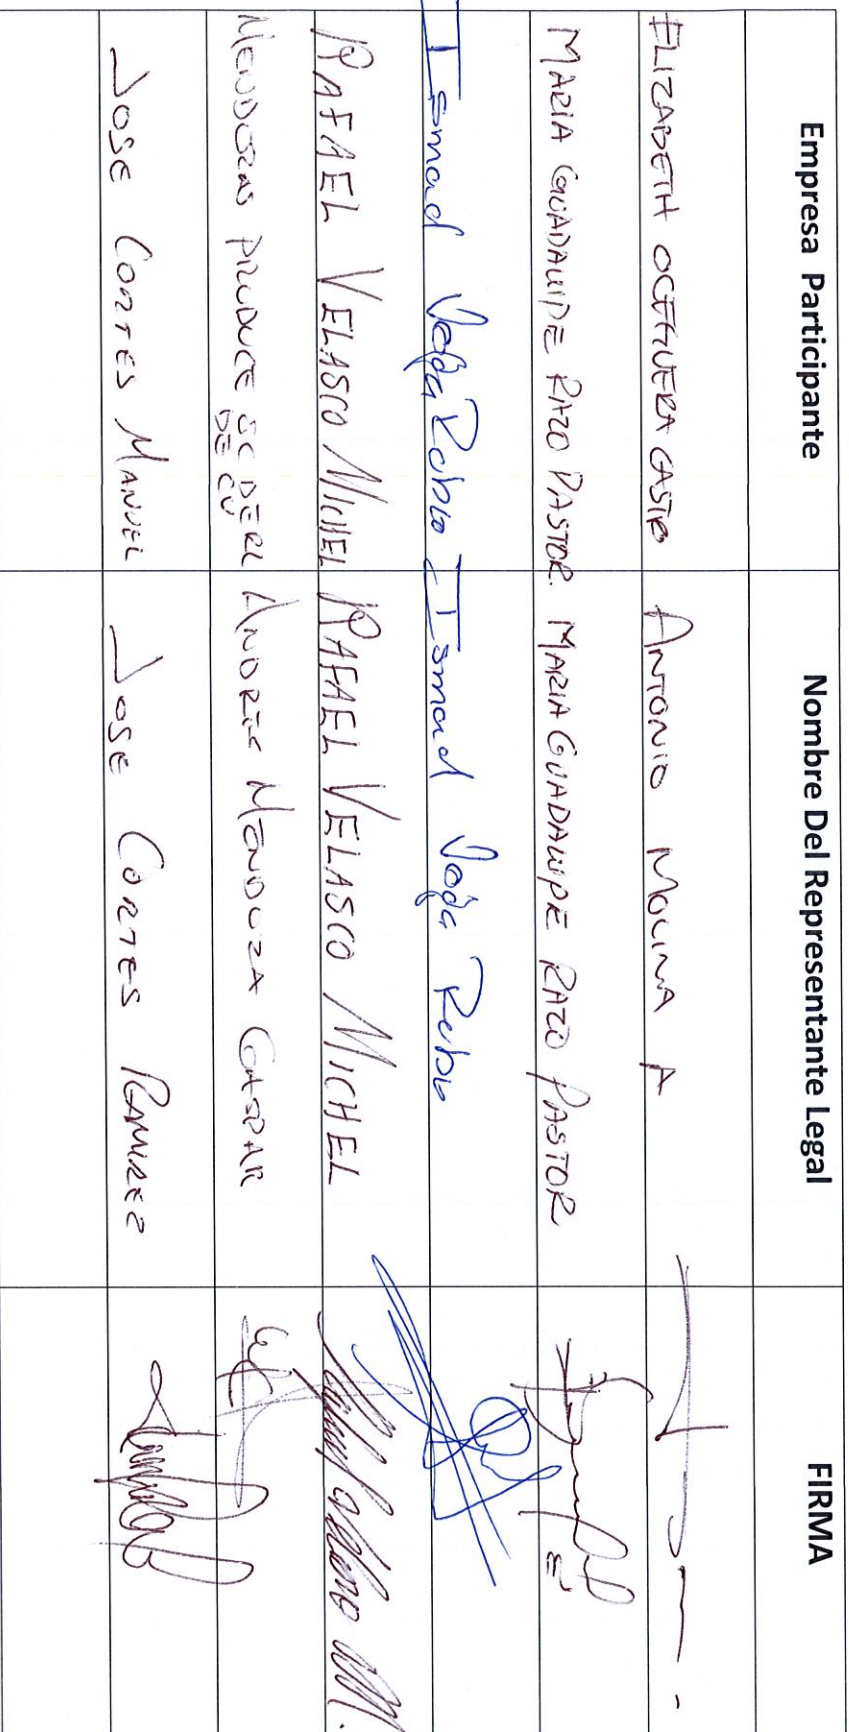 Empresa Participante Nombre Del Representante Legal FIRMA
ELIZABETH OCEGUERA CASTRO ANTONIO MOLINA A
MARIA GUADALUPE RAZO PASTOR. MARIA GUADALUPE RAZO PASTOR
Ismael Vega Rubio Ismael Vega Rubio
RAFAEL VELASCO MICHEL RAFAEL VELASCO MICHEL
MENDOZAS PRODUCE SC DE RL ANDRES MENDOZA GASPAR
DE CV
JOSE CORTES MANUEL JOSE CORTES RAMIREZ